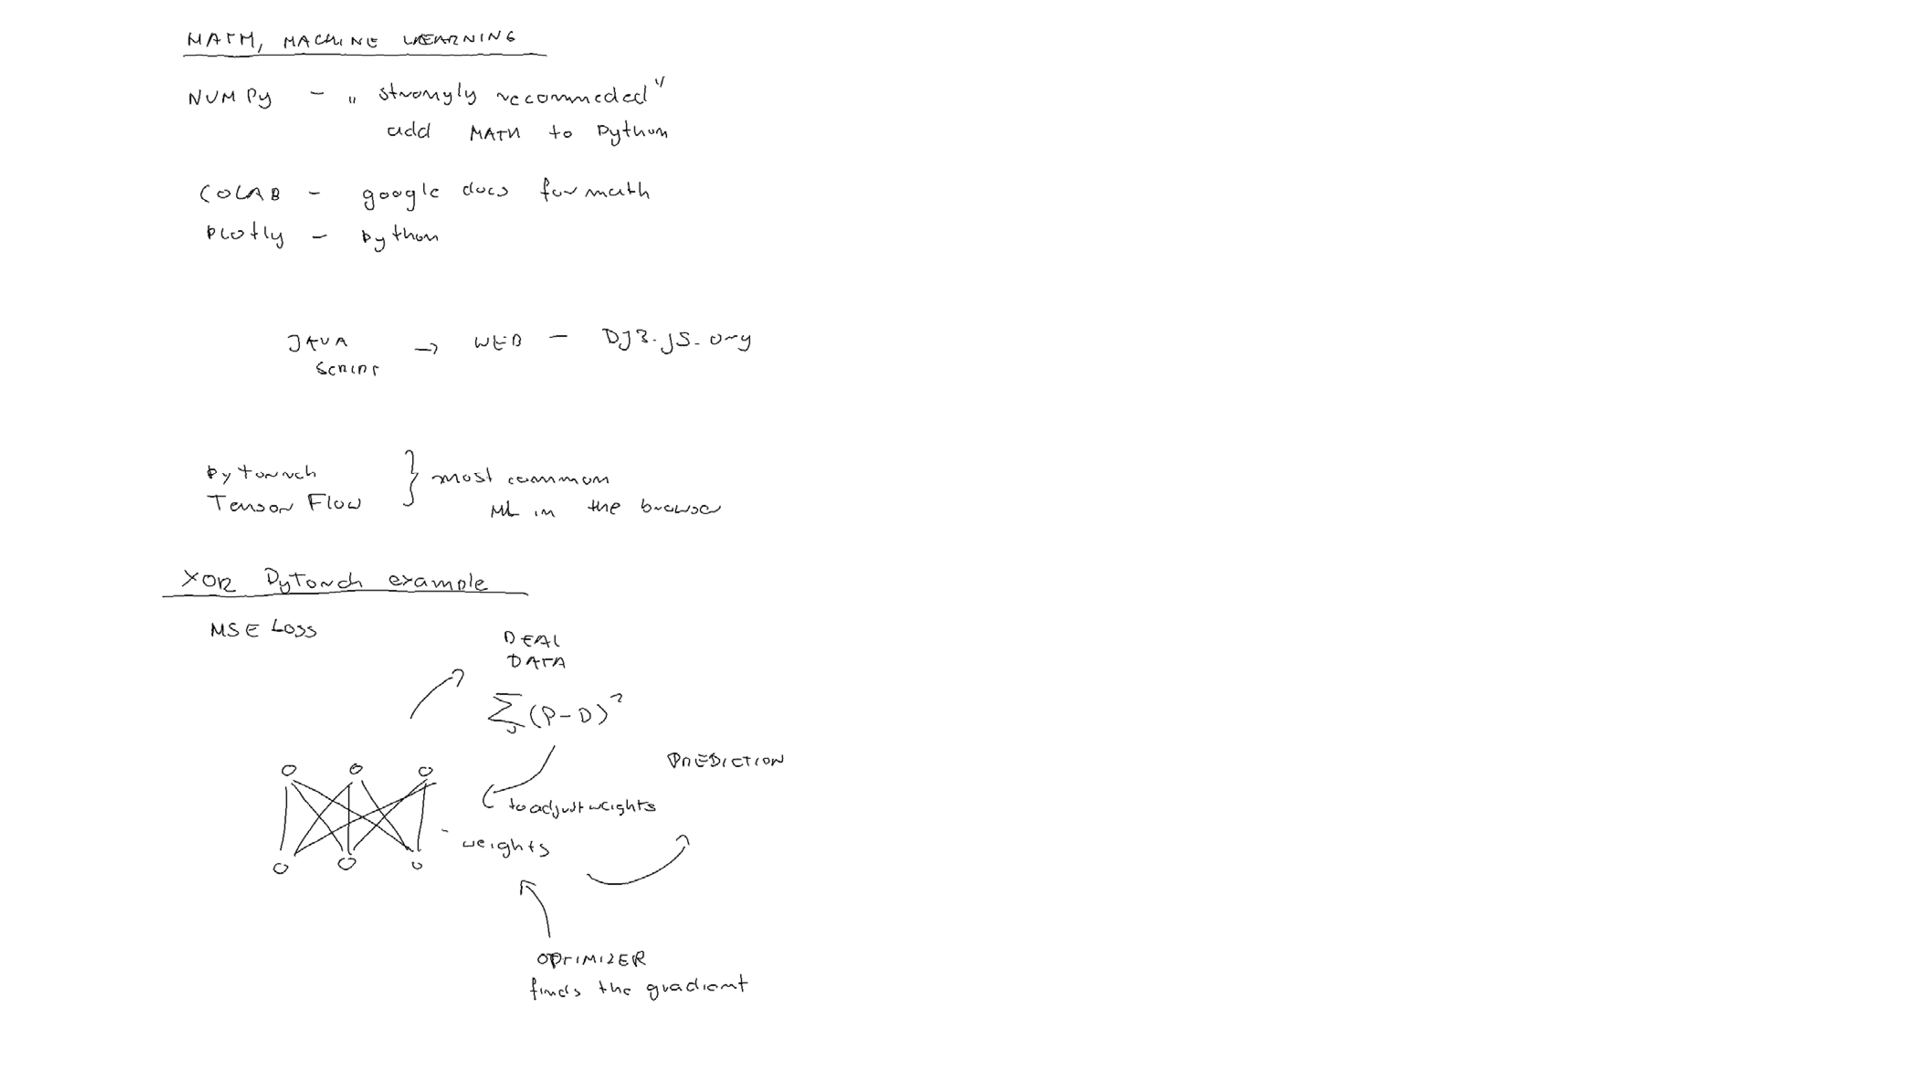 MATH, MACHINE LEARNING
NUMPy - "strongly recommeded"
add MATH to Python
COLAB - google docs for math
Plotly - Python
JAVA → WEB - DJ3.js.org
SCRIPT
PyTorch } most common
Tensor Flow ML in the browser
XOR PyTorch example
MSE LOSS
REAL
DATA
∑(P-D)²
PREDICTION
to adjust weights
weights
OPTIMIZER
finds the gradient